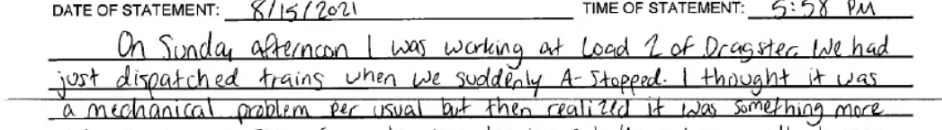 DATE OF STATEMENT: 8/15/2021 TIME OF STATEMENT: 5:58 PM
On Sunday afternoon I was working at Load 2 of Dragster. We had
just dispatched trains when we suddenly A-Stopped. I thought it was
a mechanical problem per usual but then realized it was something more